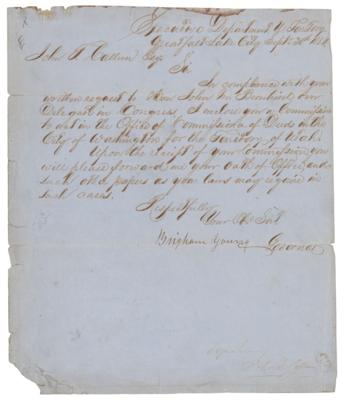 Executive Department U. Territory
Great Salt Lake City Sept 30th
John S. Callan Esqr
Sir
In compliance with your
written request to Hon John M Bernhisel our
Delegate in Congress I inclose you a Commission
to act in the Office of Commissioner of Deeds in the
City of Washington for the Territory of Utah.
Upon the receipt of your Commission you
will please forward me your oath of Office, and
such other papers as your laws may require in
such cases.
Respectfully
Your Ob Sert
Brigham Young Governor